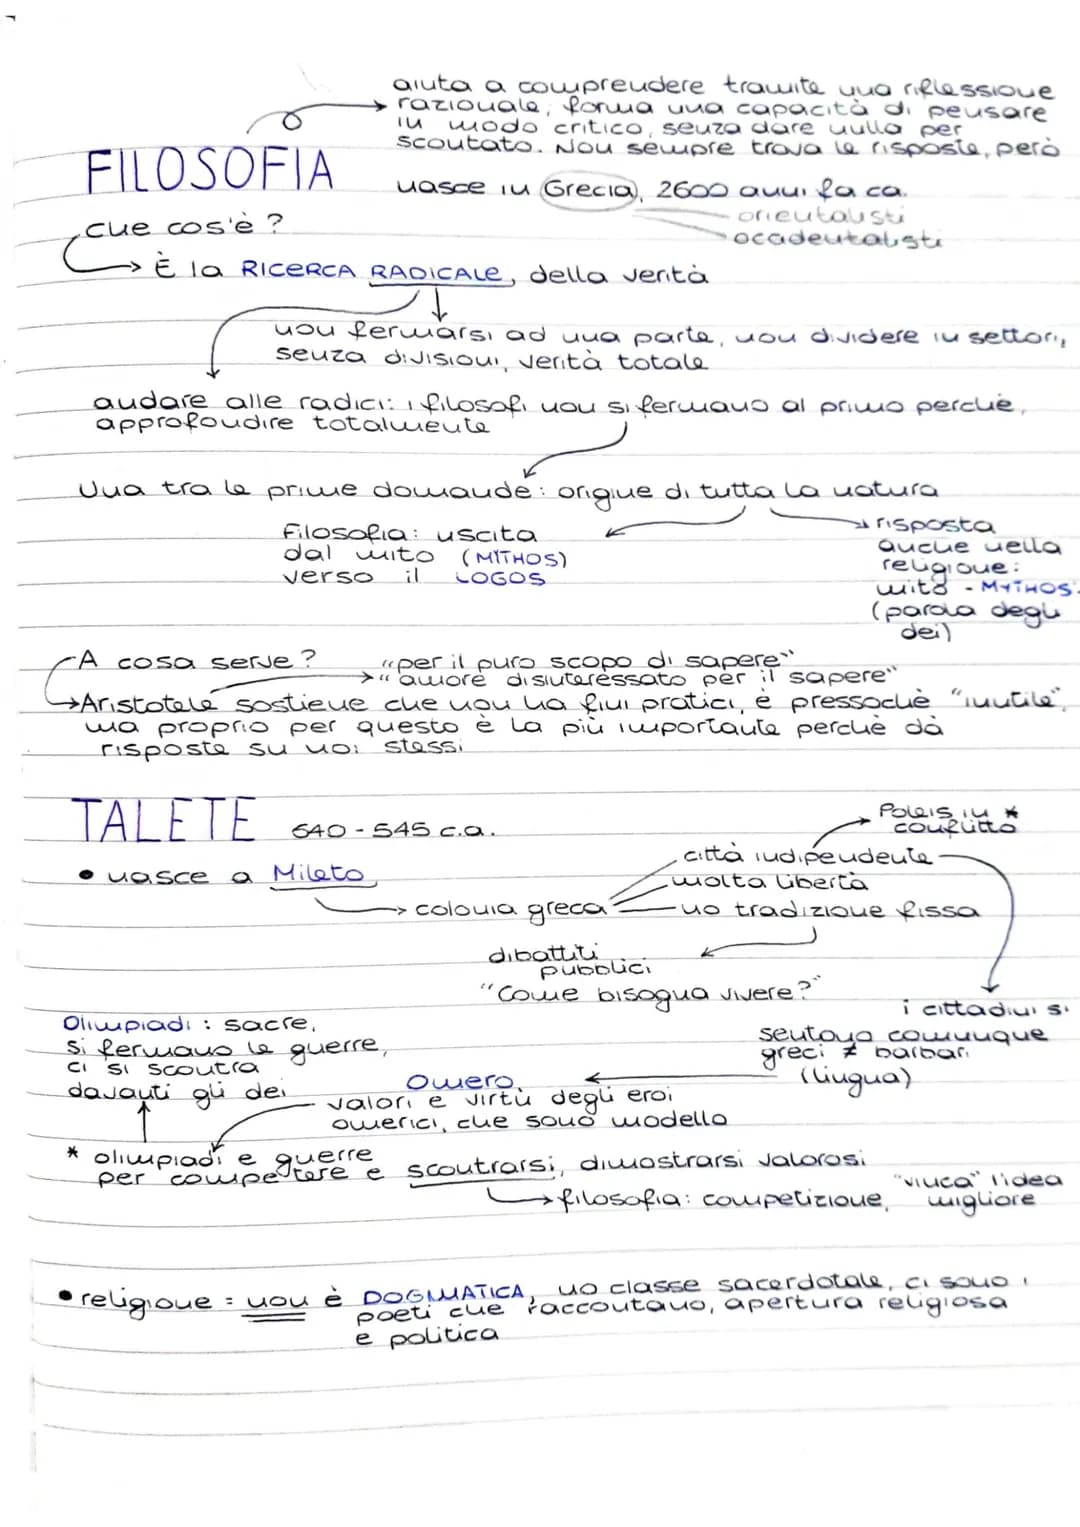 aiuta a comprendere tramite una riflessione
razionale; forma una capacità di pensare
in modo critico, senza dare nulla per
scontato. Non sempre trova le risposte, però
FILOSOFIA
nasce in Grecia, 2600 anni fa ca.
orientalisti
ocadentalisti
che cos'è ?
È la RICERCA RADICALE, della verità
non fermarsi ad una parte, non dividere in settori,
senza divisioni, verità totale
andare alle radici: i filosofi non si fermano al primo perchè,
approfondire totalmente
Una tra le prime domande: origine di tutta la natura
Filosofia: uscita
dal mito (MYTHOS)
verso il LOGOS
risposta
anche nella
religione:
mito - MYTHOS:
(parola degli
dei)
A cosa serve ?
"per il puro scopo di sapere"
"amore disinteressato per il sapere"
Aristotele sostiene che non ha fini pratici, è pressochè "inutile",
ma proprio per questo è la più importante perchè dà
risposte su noi stessi
TALETE 640 - 545 c.a.
Poleis in *
conflitto
• nasce a Mileto
città indipendente
molta libertà
colonia greca
no tradizione fissa
dibattiti
pubblici
"Come bisogna vivere?"
i cittadini si
sentono comunque
greci ≠ barbari
(lingua)
Olimpiadi : sacre,
si fermano le guerre,
ci si scontra
davanti gli dei
Omero,
valori e virtù degli eroi
omerici, che sono modello
* olimpiadi e guerre
per competere e scontrarsi, dimostrarsi valorosi
filosofia: competizione, "vinca" l'idea
migliore
• religione = non è DOGMATICA, no classe sacerdotale, ci sono i
poeti che raccontano, apertura religiosa
e politica